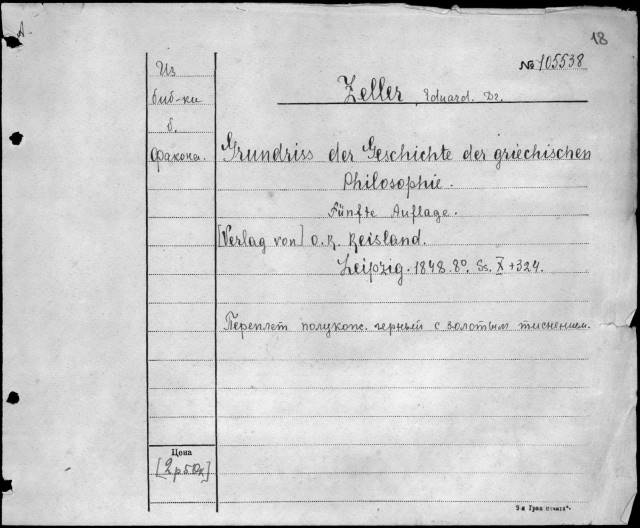 A.
18
№ 105538
Из
биб-ки
б.
Факона.
Zeller, Eduard. Dr.
Grundriss der Geschichte der griechischen
Philosophie.
Fünfte Auflage.
[Verlag von] O. R. Reisland.
Leipzig. 1848. 8°. Ss. X + 324.
Переплет полукож. черный с золотым тиснением.
Цена
[2 р. 50 к]